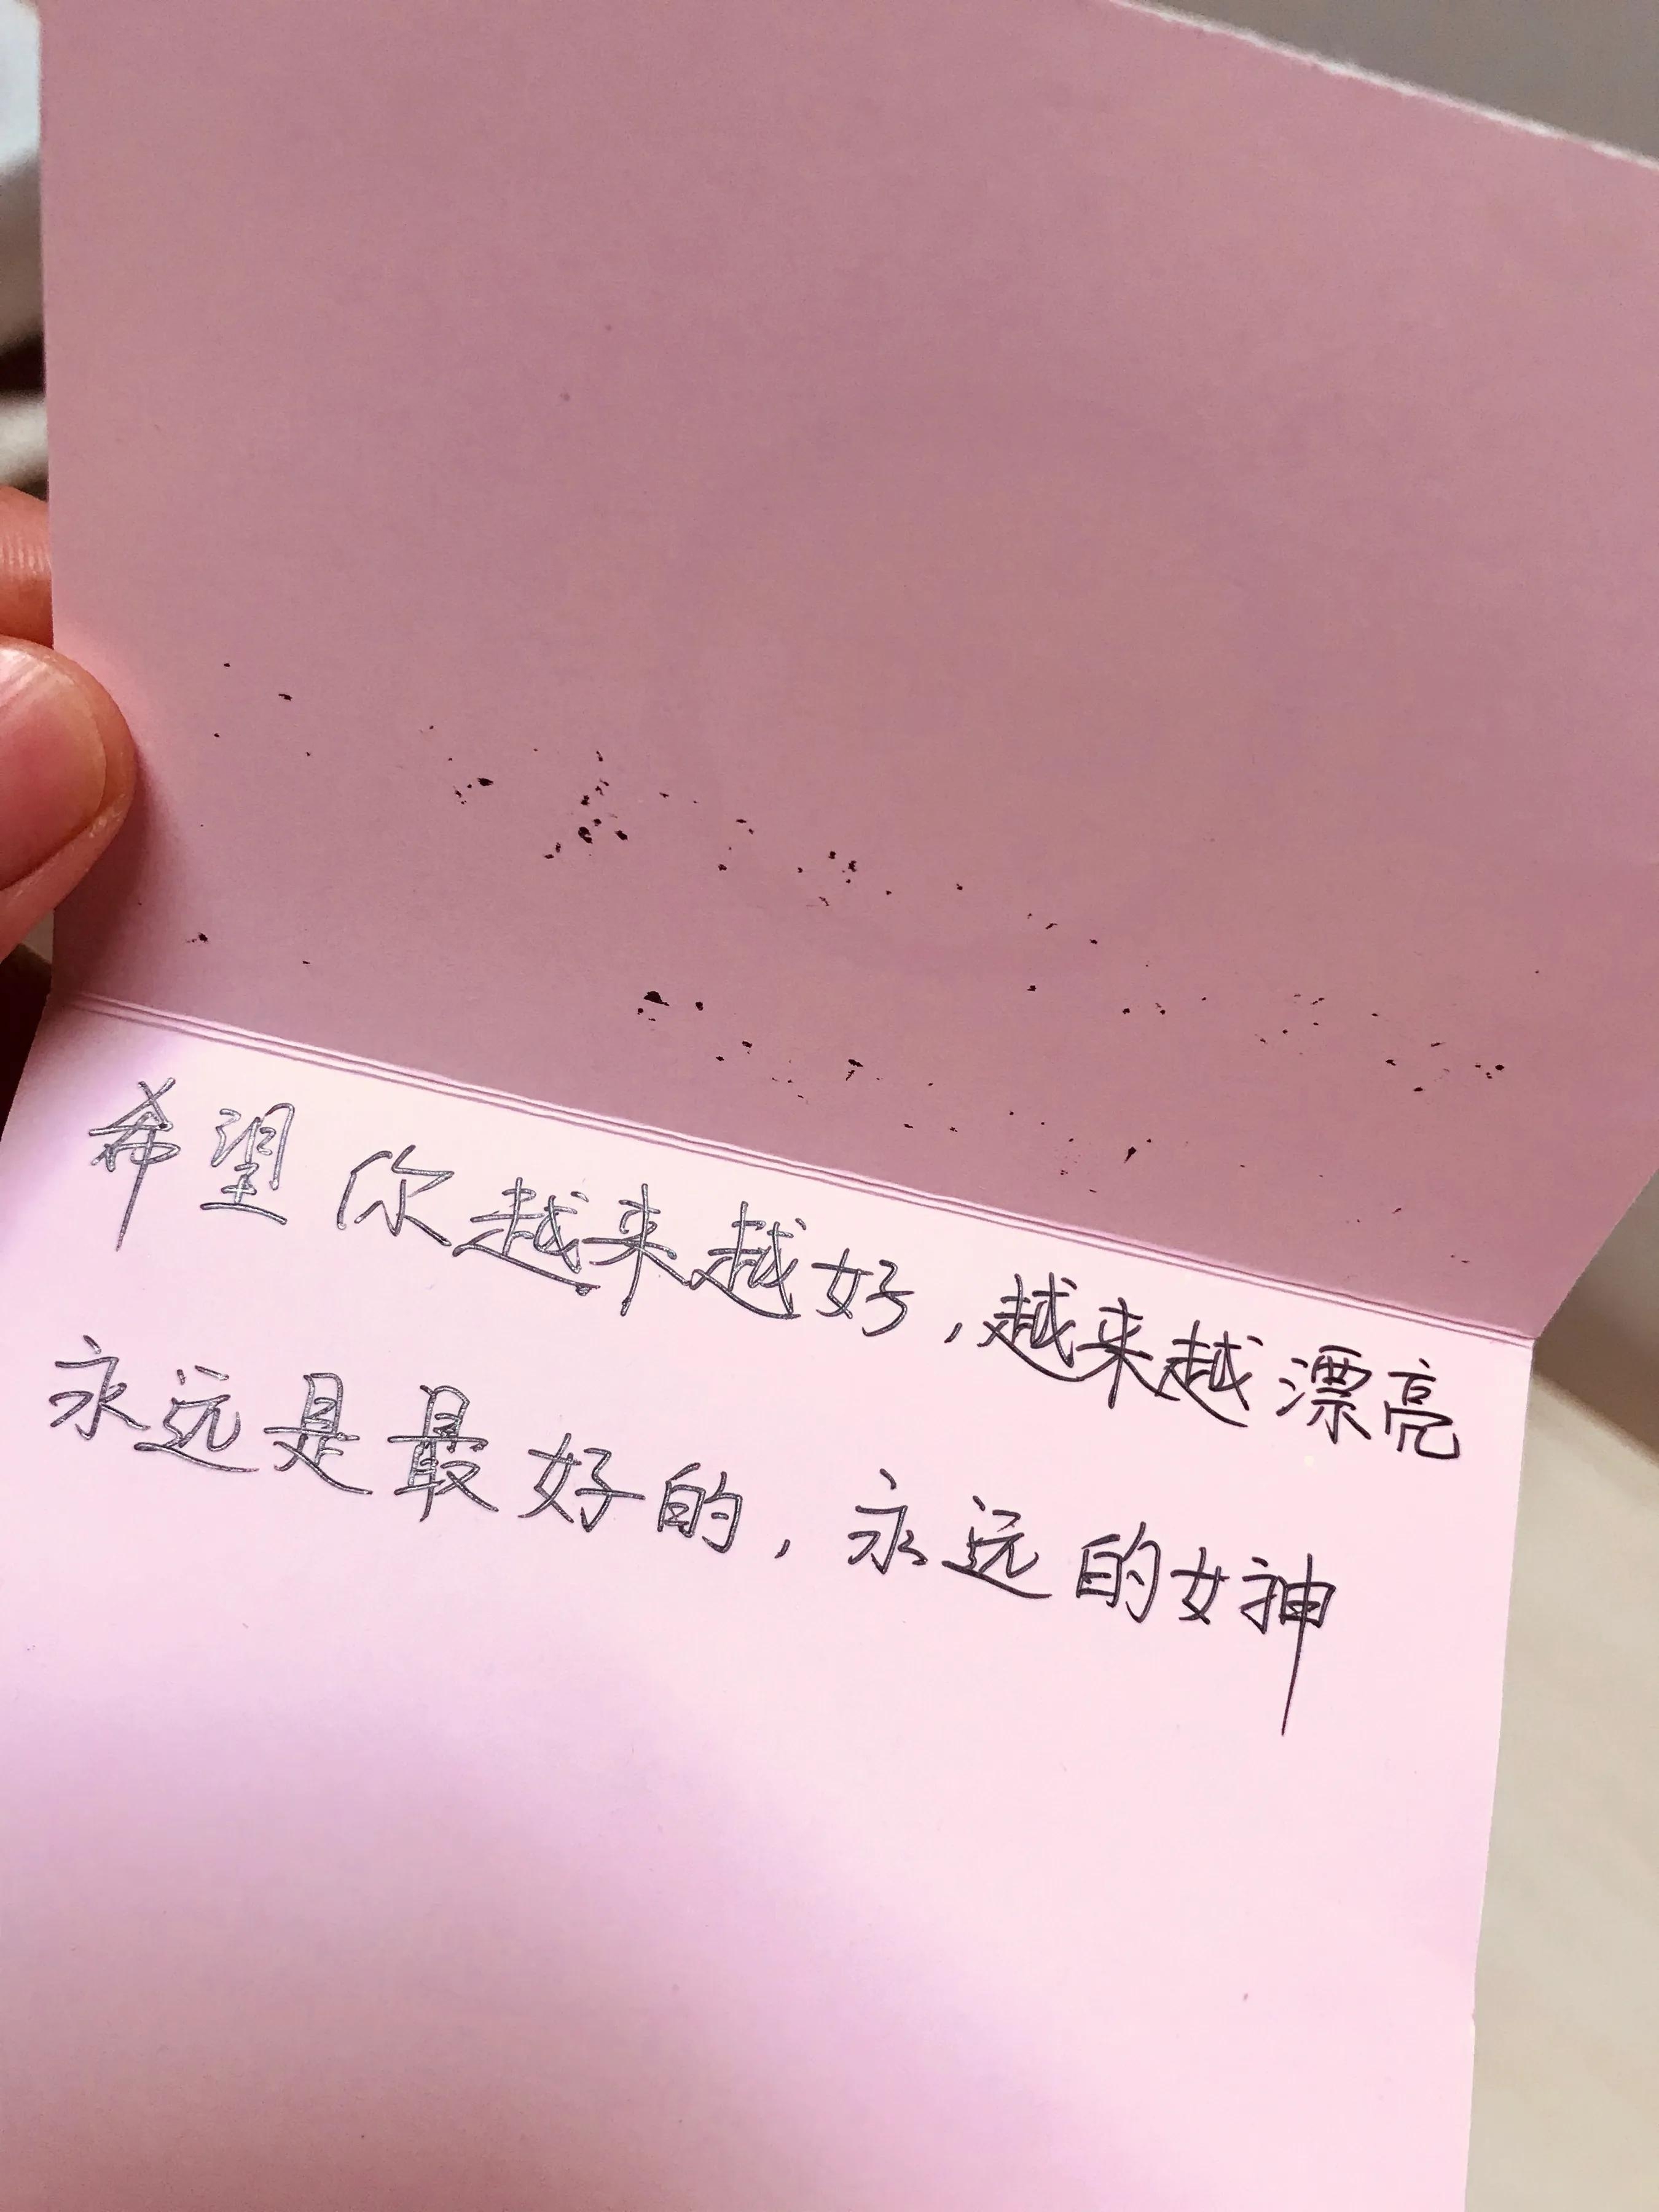 希望你越来越好,越来越漂亮
永远是最好的,永远的女神